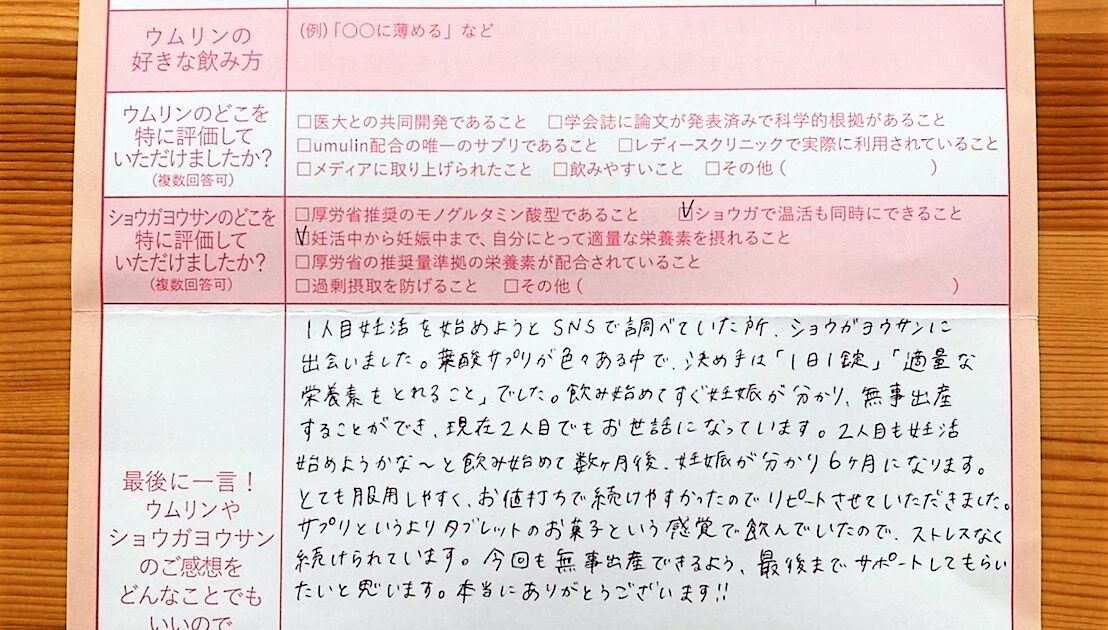 ウムリンの
好きな飲み方
(例)「○○に薄める」など
ウムリンのどこを
特に評価して
いただけましたか?
(複数回答可)
□医大との共同開発であること □学会誌に論文が発表済みで科学的根拠があること
□umulin配合の唯一のサプリであること □レディースクリニックで実際に利用されていること
□メディアに取り上げられたこと □飲みやすいこと □その他( )
ショウガヨウサンのどこを
特に評価して
いただけましたか?
(複数回答可)
□厚労省推奨のモノグルタミン酸型であること ☑ショウガで温活も同時にできること
☑妊活中から妊娠中まで、自分にとって適量な栄養素を摂れること
□厚労省の推奨量準拠の栄養素が配合されていること
□過剰摂取を防げること □その他( )
最後に一言!
ウムリンや
ショウガヨウサン
のご感想を
どんなことでも
いいので
1人目妊活を始めようとSNSで調べていた所、ショウガヨウサンに
出会いました。葉酸サプリが色々ある中で、決め手は「1日1錠」「適量な
栄養素もとれること」でした。飲み始めてすぐ妊娠が分かり、無事出産
することができ、現在2人目でもお世話になっています。2人目も妊活
始めようかな〜と飲み始めて数ヶ月後、妊娠が分かり6ヶ月になります。
とても服用しやすく、お値打ちで続けやすかったのでリピートさせていただきました。
サプリというよりタブレットのお菓子という感覚で飲んでいたので、ストレスなく
続けられています。今回も無事出産できるよう、最後までサポートしてもらい
たいと思います。本当にありがとうございます!!